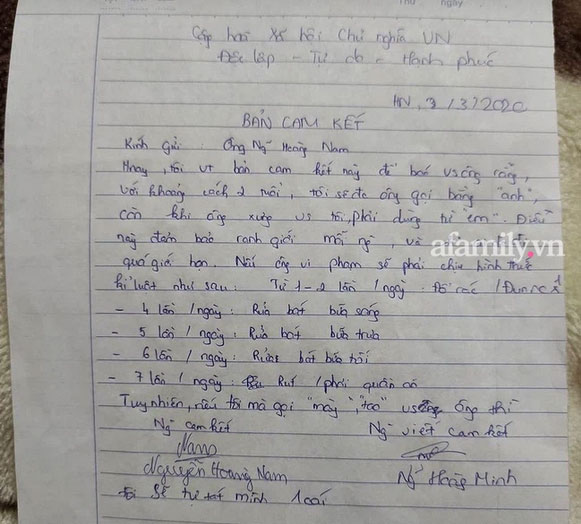 Thứ ngày
Cộng hoà Xã hội Chủ nghĩa VN
Độc lập - Tự do - Hạnh phúc
HN, 3/3/2020
BẢN CAM KẾT
Kính gửi: Ông Ng~ Hoàng Nam
Hnay, tôi vt bản cam kết này để báo vs ông rằng,
với khoảng cách 2 tuổi, tôi sẽ đc ông gọi bằng "anh",
còn khi ông xưng vs tôi, phải dùng từ "em". Điều
này đảm bảo ranh giới mỗi ng, và
quá giới hạn. Nếu ông vi phạm sẽ phải chịu hình thức
kỉ luật như sau: Từ 1-2 lần / ngày: Đổ rác
- 4 lần / ngày: Rửa bát bữa sáng
- 5 lần / ngày: Rửa bát bữa trưa
- 6 lần / ngày: Rửa bát bữa tối
- 7 lần / ngày: Rút / phơi quần áo
Tuy nhiên, nếu tôi mà gọi "mày", "tao" vs ông thì
Ng cam kết Ng viết cam kết
Nam
Nguyễn Hoàng Nam Ng~ Hoàng Minh
tôi sẽ tự tát mình 1 cái
afamily.vn